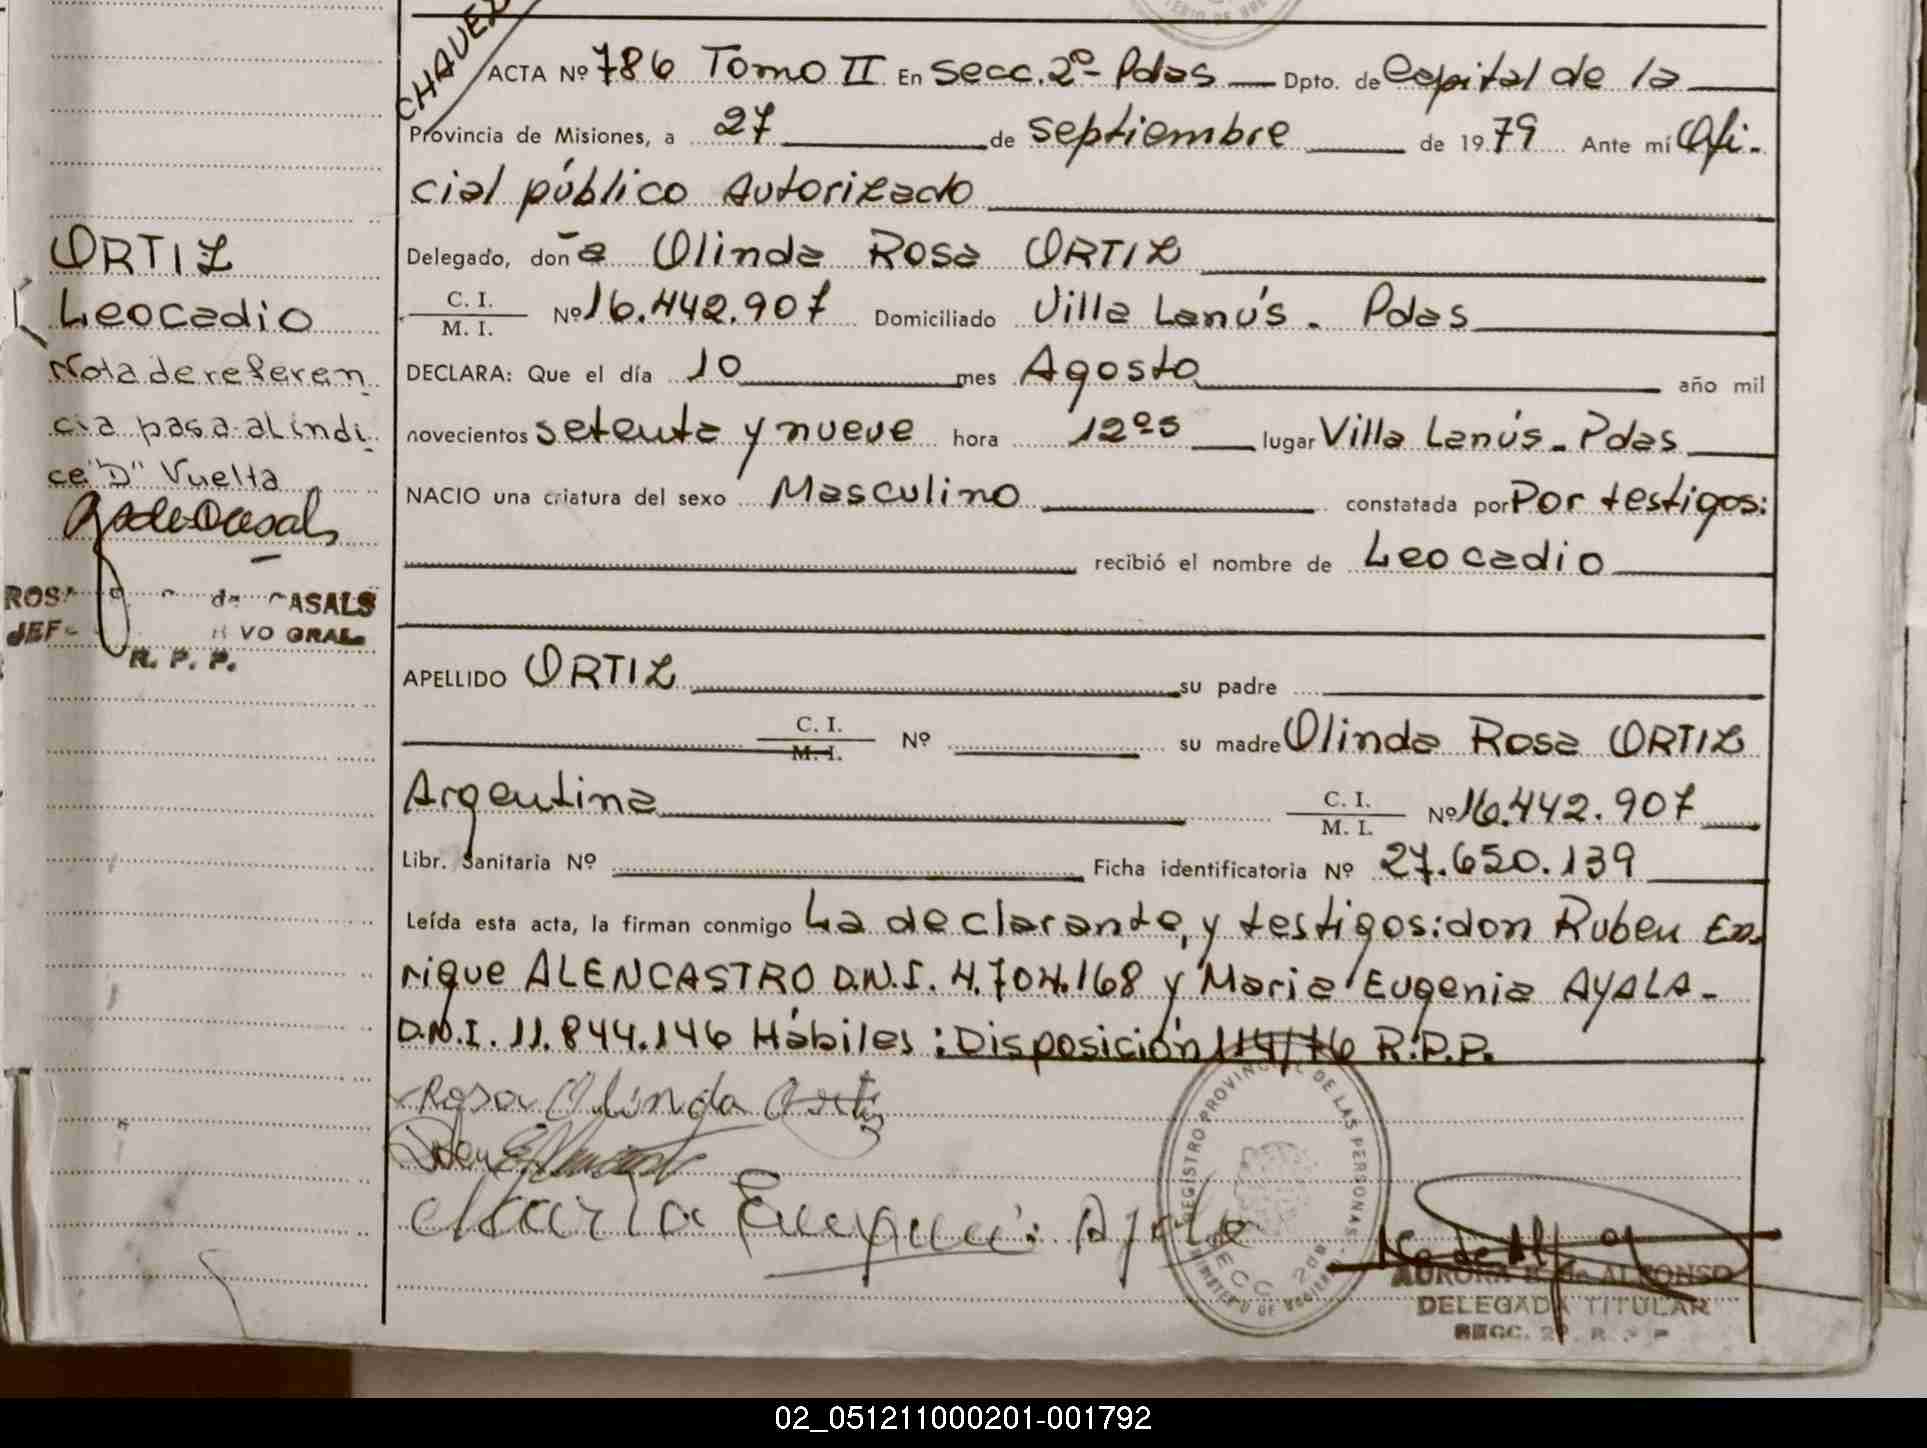 CHAVEZ
ACTA Nº 786 Tomo II En Secc. 2º - Pdas Dpto. de Capital de la
Provincia de Misiones, a 27 de septiembre de 1979 Ante mí Ofi-
cial público Autorizado
Delegado, doña Olinda Rosa ORTIZ
C. I.
M. I. Nº 16.442.907 Domiciliado Villa Lanús - Pdas
DECLARA: Que el día 10 mes Agosto año mil
novecientos setenta y nueve hora 12 05 lugar Villa Lanús - Pdas
NACIO una criatura del sexo Masculino constatada por Por testigos:
recibió el nombre de Leocadio
APELLIDO ORTIZ su padre
C. I.
M. I. Nº su madre Olinda Rosa ORTIZ
Argentina C. I.
M. I. Nº 16.442.907
Libr. Sanitaria Nº Ficha identificatoria Nº 27.650.139
Leída esta acta, la firman conmigo La declarante, y testigos: don Ruben En-
rique ALENCASTRO D.N.I. 4.704.168 y Maria Eugenia AYALA-
D.N.I. 11.844.146 Hábiles: Disposición 114/76 R.P.P.
Rosa Olinda Ortiz
Maria Eugenia Ayala
REGISTRO PROVINCIAL DE LAS PERSONAS
SECC. 2da
MINISTERIO DE GOBIERNO
AURORA B. de ALFONSO
DELEGADA TITULAR
SECC. 2ª R. P. P.
ORTIZ
Leocadio
Nota de referen
cia pasa al indi
ce "D" Vuelta
de CASALS
VO GRAL.
R. P. P.
02_051211000201-001792